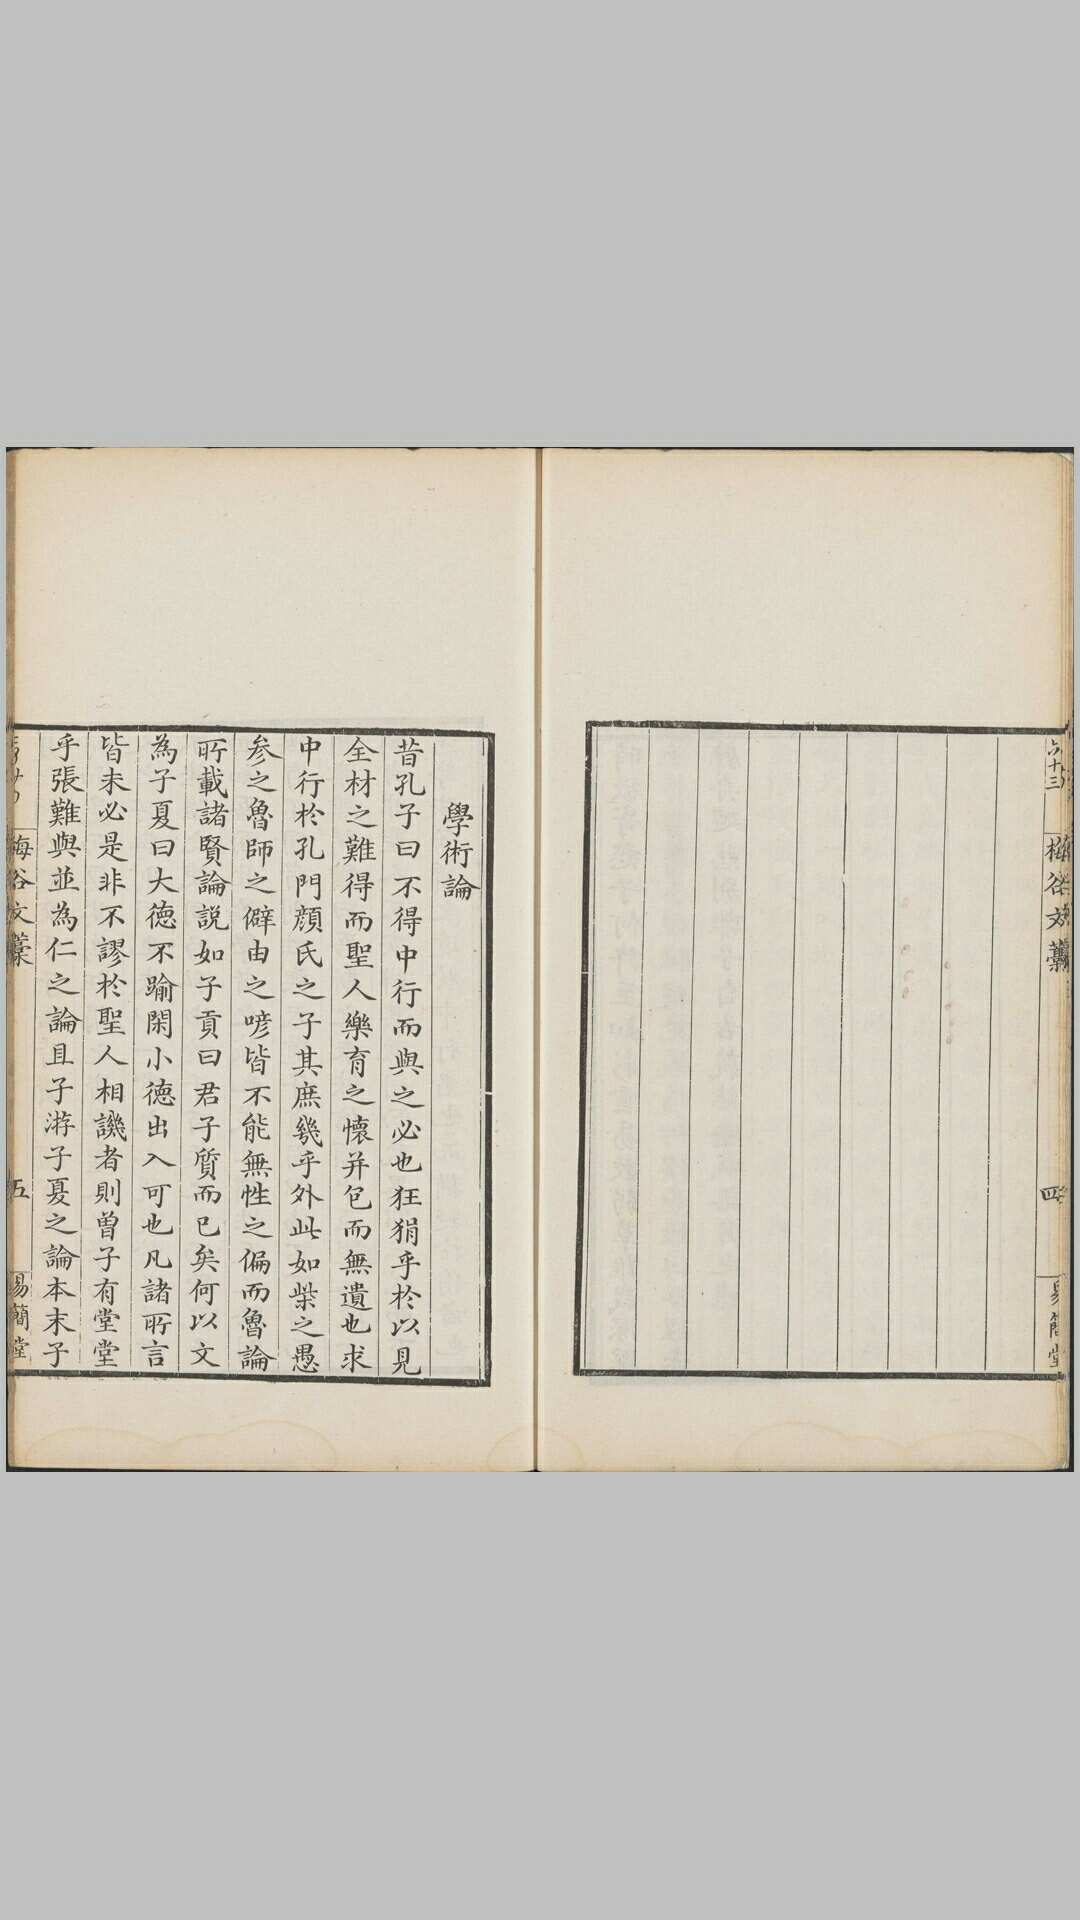 六十三
梅谷文藁
四
易簡堂
學術論
昔孔子曰不得中行而與之必也狂狷乎於以見
全材之難得而聖人樂育之懷并包而無遺也求
中行於孔門顔氏之子其庶幾乎外此如柴之愚
參之魯師之僻由之喭皆不能無性之偏而魯論
所載諸賢論説如子貢曰君子質而已矣何以文
為子夏曰大德不踰閑小德出入可也凡諸所言
皆未必是非不謬於聖人相譏者則曽子有堂堂
乎張難與並為仁之論且子游子夏之論本末子
梅谷文藁
五
易簡堂